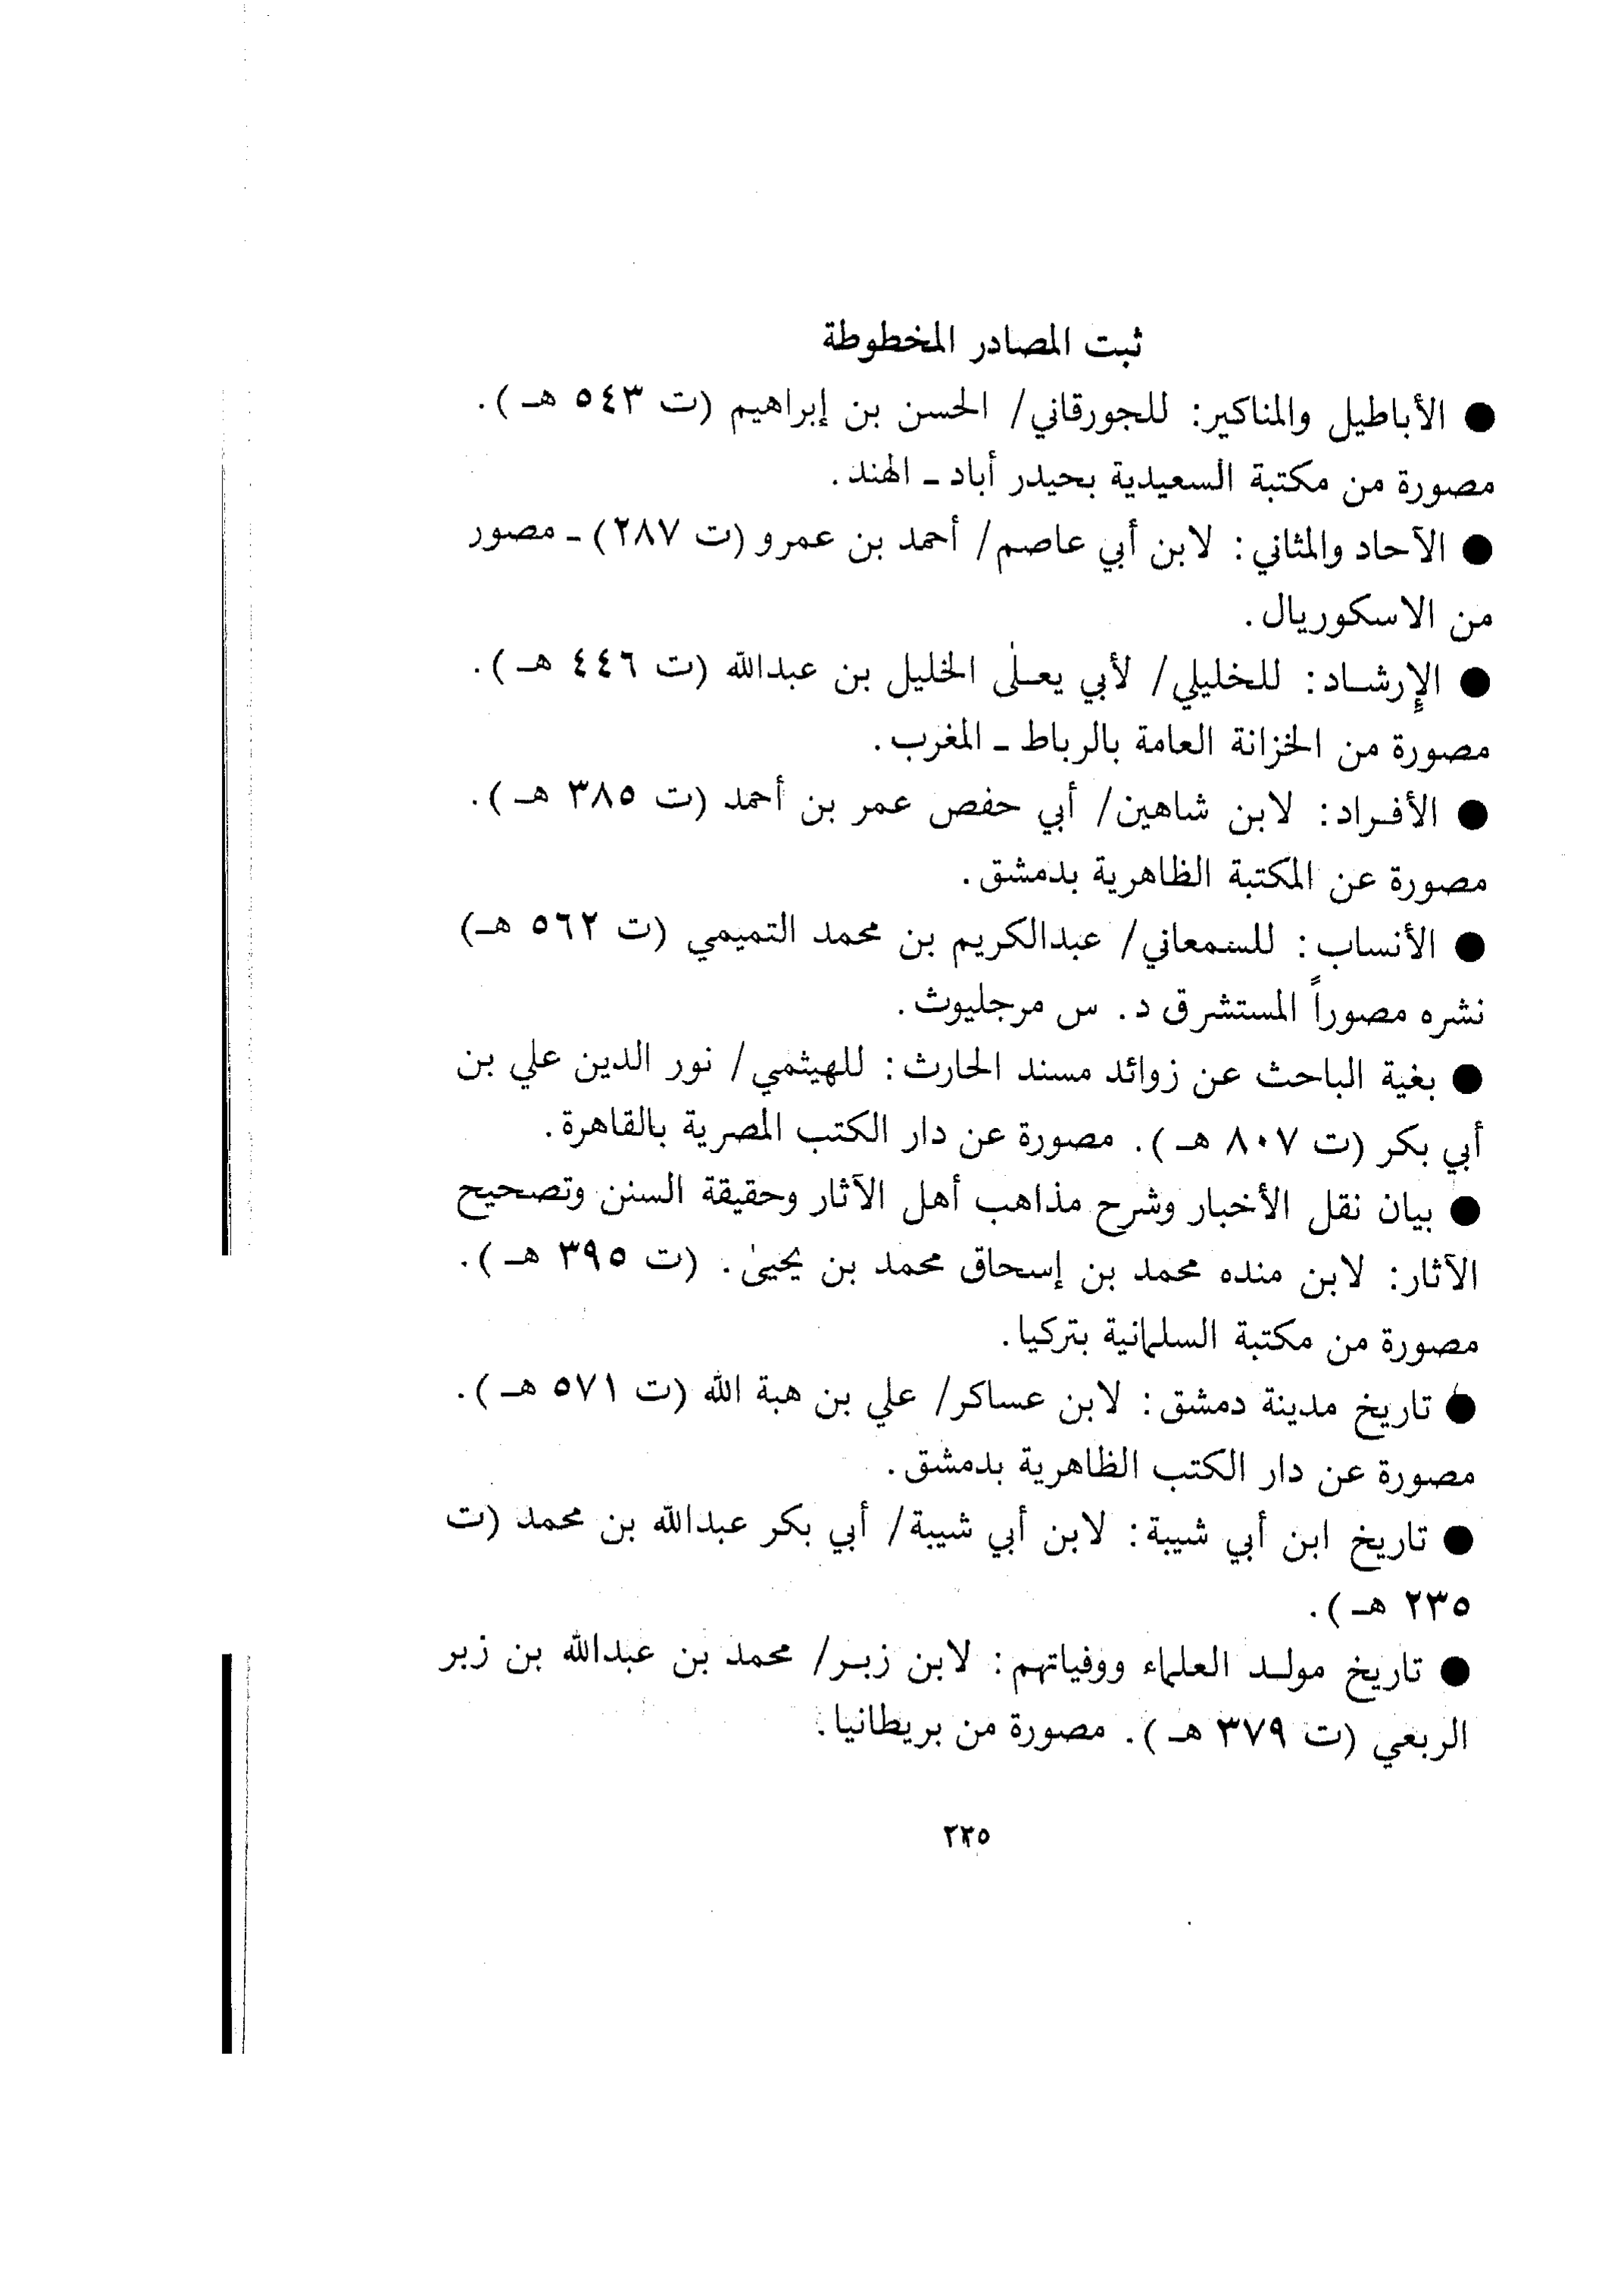 ثبت المصادر المخطوطة
● الأباطيل والمناكير: للجورقاني/ الحسن بن إبراهيم (ت ٥٤٣ هـ).
مصورة من مكتبة السعيدية بحيدر أباد ـ الهند.
● الآحاد والمثاني: لابن أبي عاصم/ أحمد بن عمرو (ت ٢٨٧) ـ مصور
من الاسكوريال.
● الإرشاد: للخليلي/ لأبي يعلى الخليل بن عبدالله (ت ٤٤٦ هـ).
مصورة من الخزانة العامة بالرباط ـ المغرب.
● الأفراد: لابن شاهين/ أبي حفص عمر بن أحمد (ت ٣٨٥ هـ).
مصورة عن المكتبة الظاهرية بدمشق.
● الأنساب: للسمعاني/ عبدالكريم بن محمد التميمي (ت ٥٦٢ هـ)
نشره مصوراً المستشرق د. س مرجليوث.
● بغية الباحث عن زوائد مسند الحارث: للهيثمي/ نور الدين علي بن
أبي بكر (ت ٨٠٧ هـ). مصورة عن دار الكتب المصرية بالقاهرة.
● بيان نقل الأخبار وشرح مذاهب أهل الآثار وحقيقة السنن وتصحيح
الآثار: لابن منده محمد بن إسحاق محمد بن يحيى. (ت ٣٩٥ هـ).
مصورة من مكتبة السلمانية بتركيا.
● تاريخ مدينة دمشق: لابن عساكر/ علي بن هبة الله (ت ٥٧١ هـ).
مصورة عن دار الكتب الظاهرية بدمشق.
● تاريخ ابن أبي شيبة: لابن أبي شيبة/ أبي بكر عبدالله بن محمد (ت
٢٣٥ هـ).
● تاريخ مولد العلماء ووفياتهم: لابن زبر/ محمد بن عبدالله بن زبر
الربعي (ت ٣٧٩ هـ). مصورة من بريطانيا.
٢٢٥